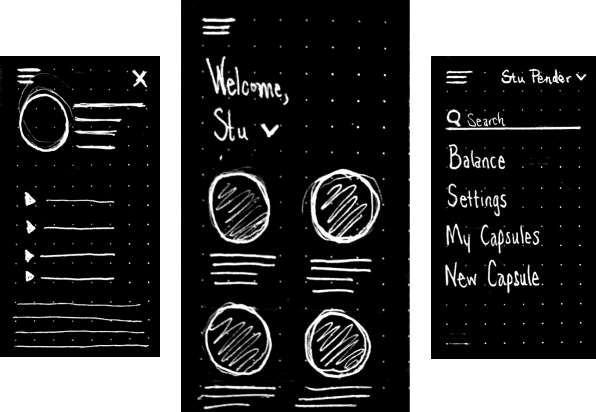 X
Welcome,
Stu
Stu Pender
Search
Balance
Settings
My Capsules
New Capsule